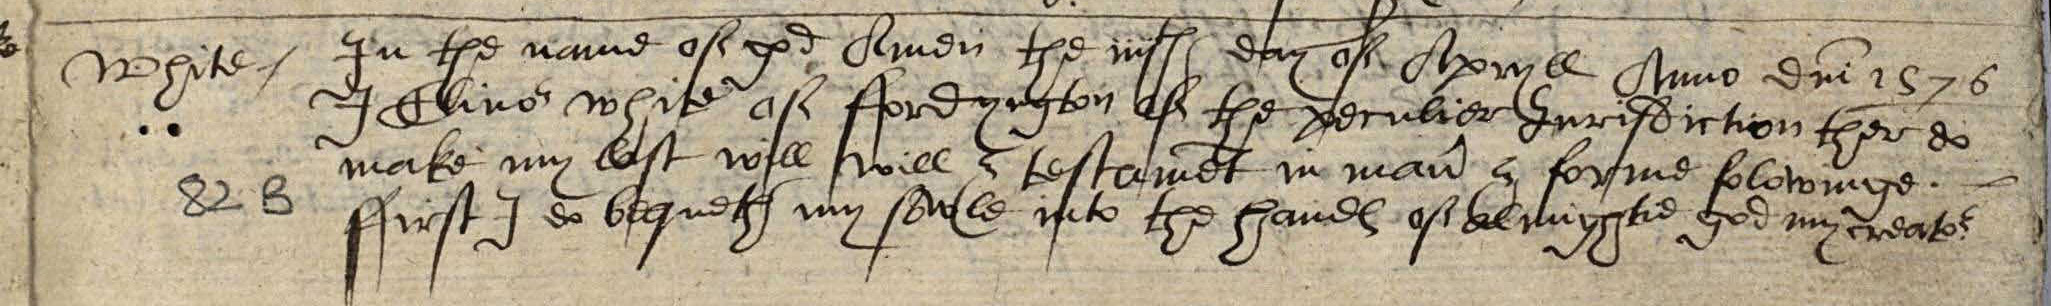 White
82 B
In the name of god Amen the iiijth day of Apryll Anno dni 1576
I Elino^r white of ffordyngton of the peculier Jurisdiction ther do
make my last will will & testamet in man & forme folowinge . —
ffirst I do bequeth my sowle into the hands of almyghtie god my creato^r